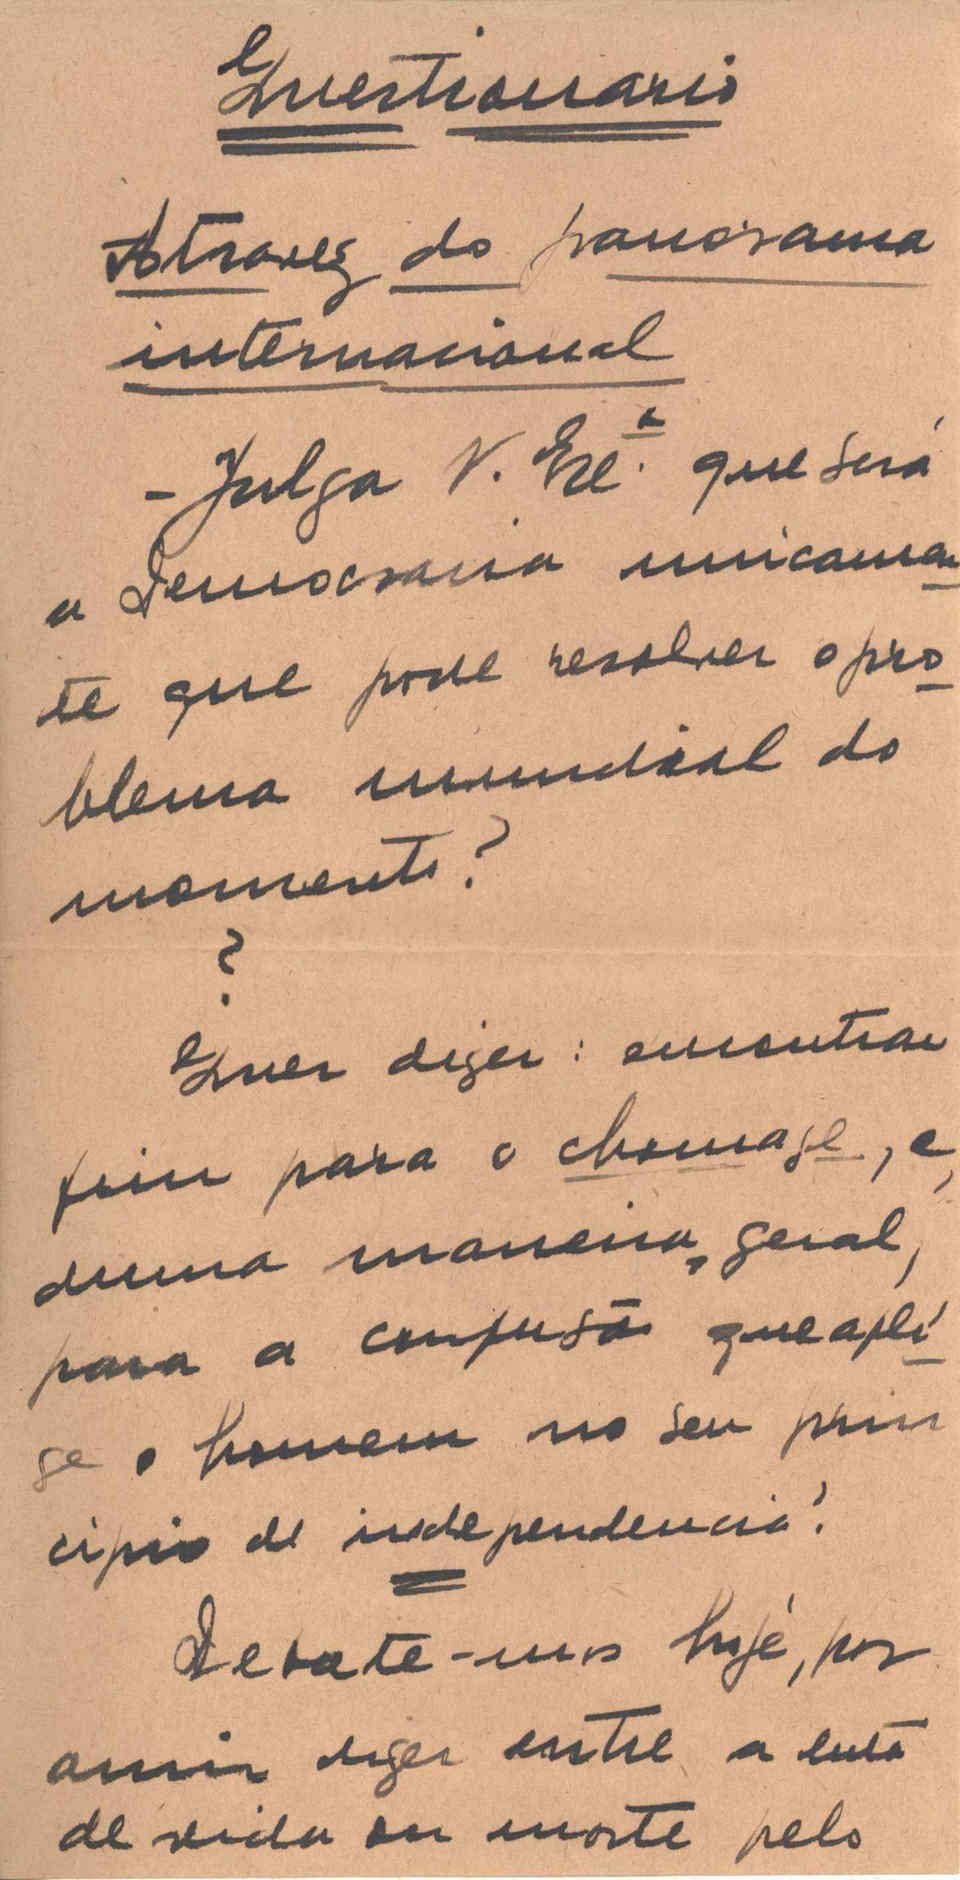 Questionario
Atravez do panorama
internacional
- Julga V. Exª. que será
a Democracia unicamen
te que pode resolver o pro
blema mundial do
momento?
?
Quer dizer: encontrar
fim para o chomage, e,
duma maneira, geral,
para a confusão que afli
ge o homem no seu prin
cipio de independencia?
Debate-mos hoje, por
assim dizer entre a luta
de vida ou morte pelo